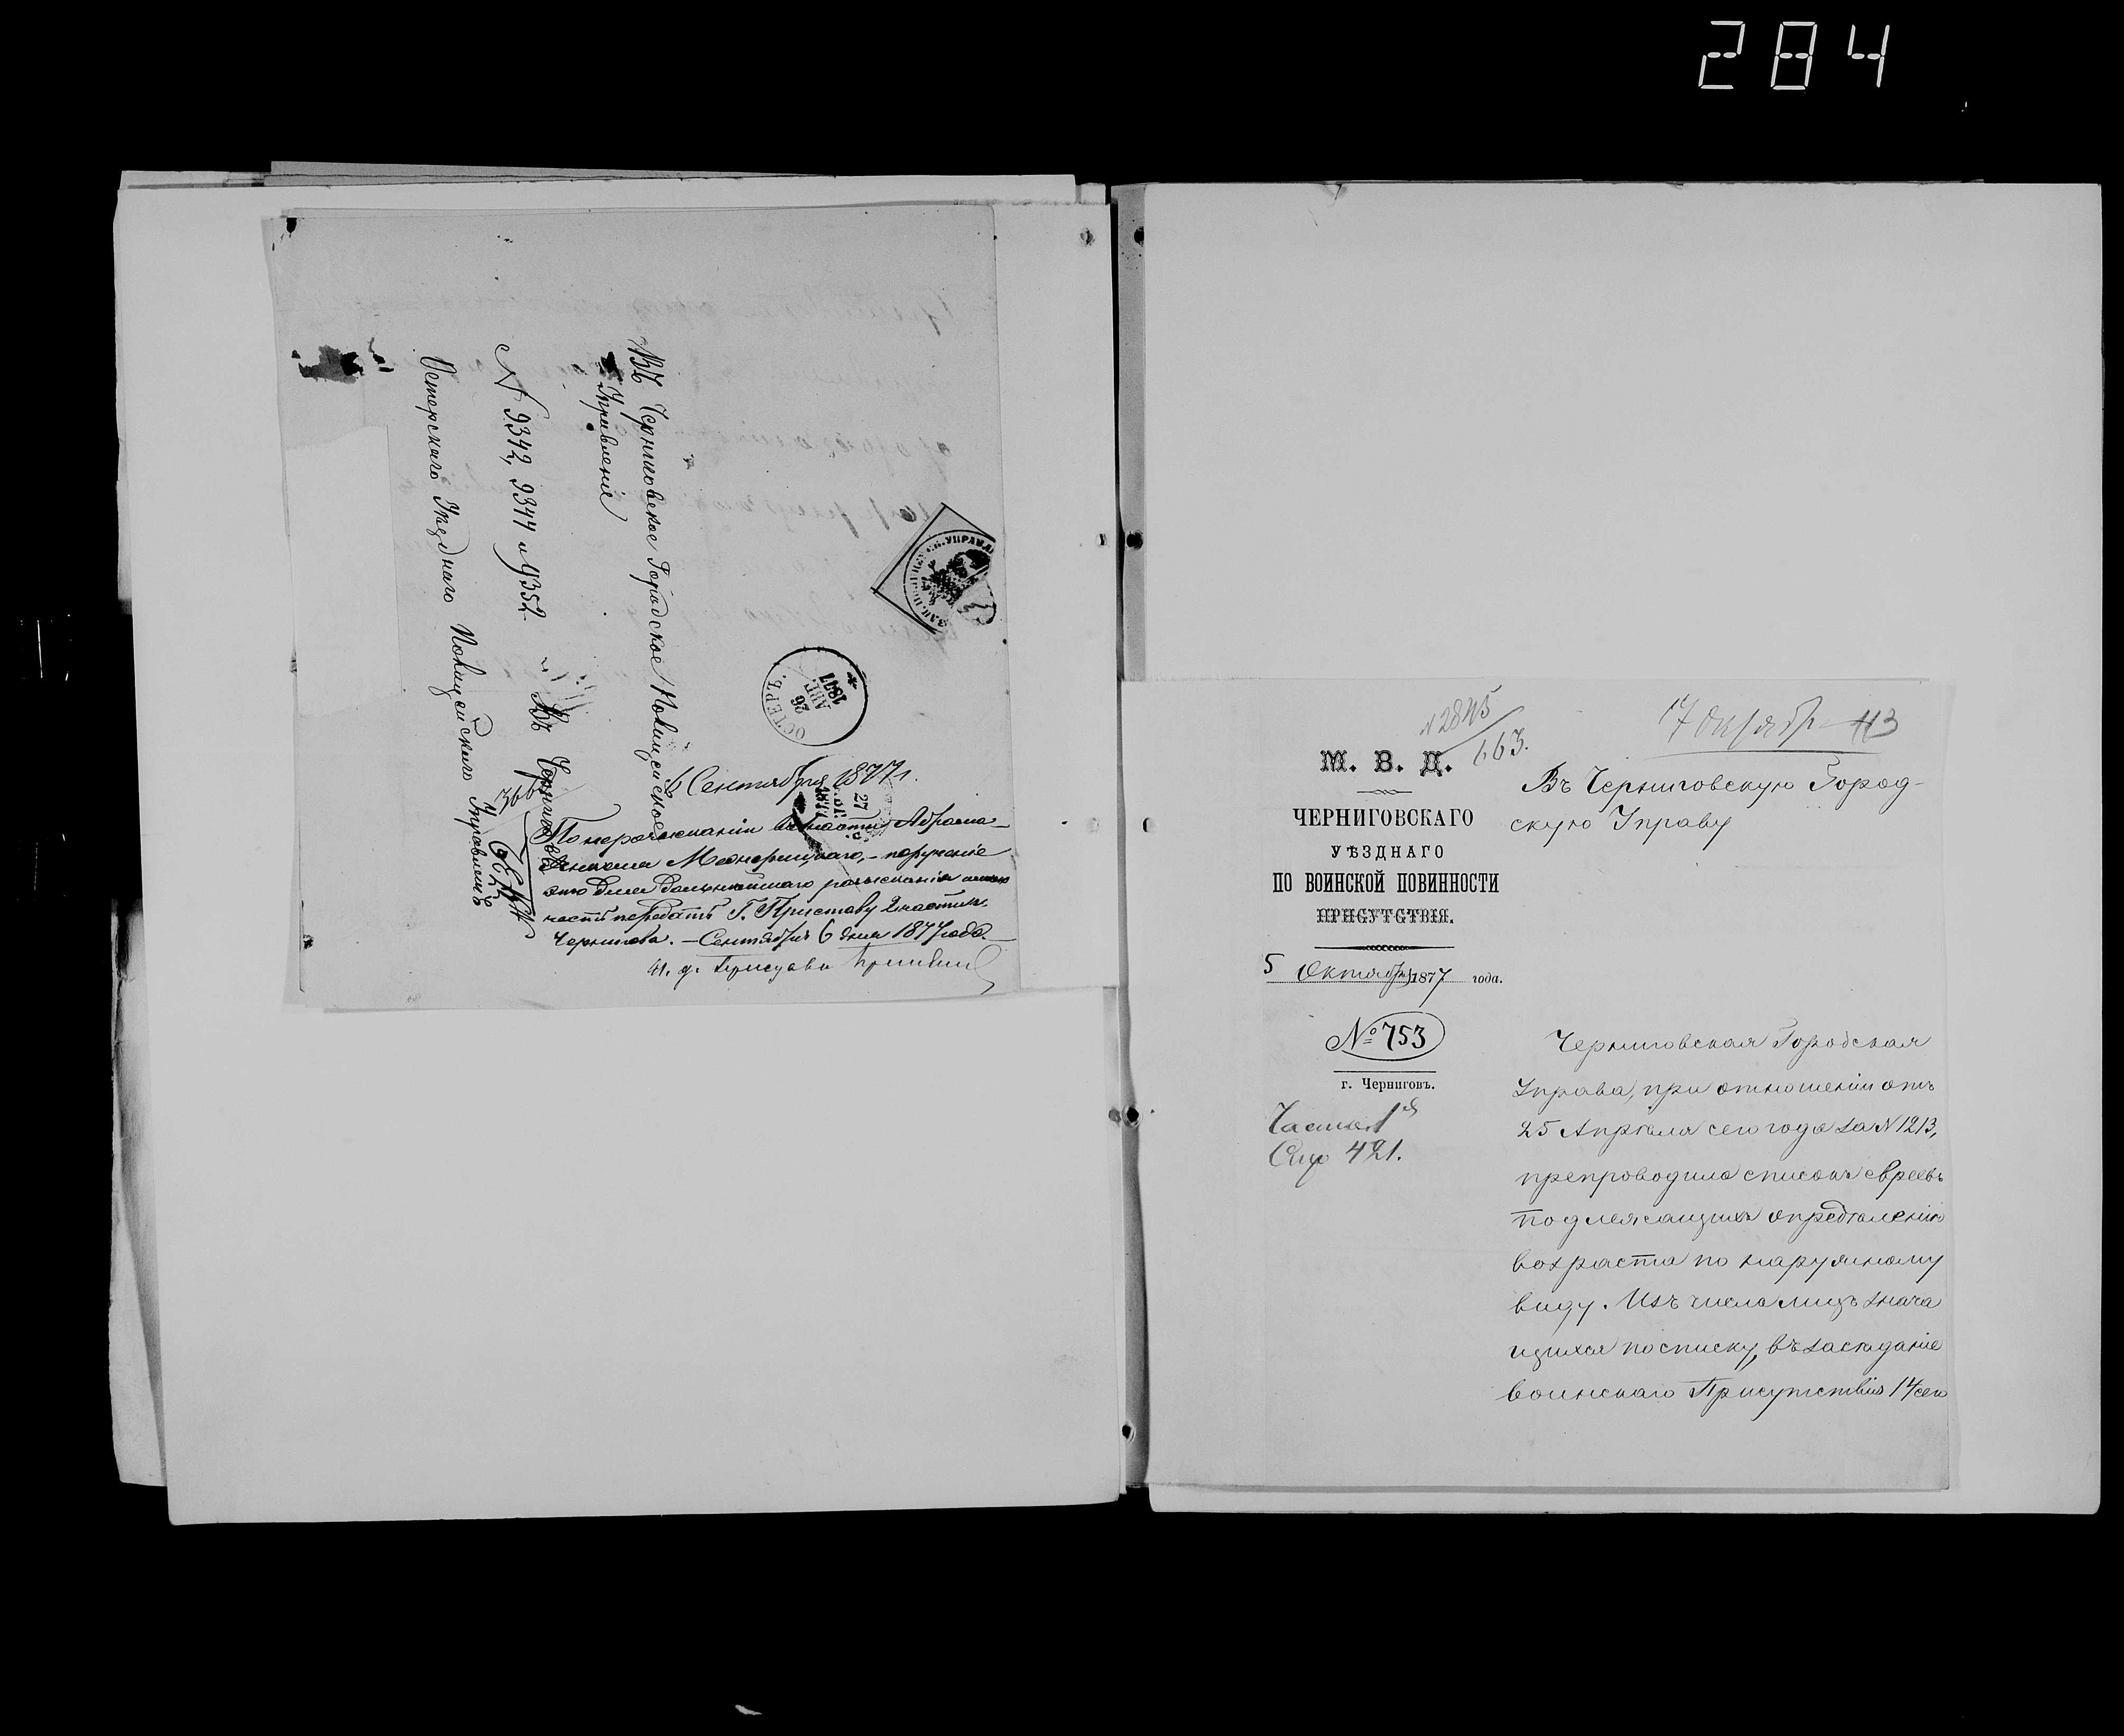 284
Въ Черниговское Городское Полицейское
Управленіе
N 9342, 9344 и 9352
Въ Черниговъ
Остерскаго Уѣзднаго Полицейскаго Управленія
ОСТЕРЪ.
26
АВГ.
1877
6 Сентября 1877 г.
27
По нерозысканіи въ 1 части Абрама
Межерицкаго, – порученіе
это для дальнѣйшаго розысканія
передать Г. Приставу 2 части г.
Чернигова. – Сентября 6 дня 1877 года. –
И. д. Пристава
N 2845
663.
17 Октября
113
М. В. Д.
ЧЕРНИГОВСКАГО
УѢЗДНАГО
ПО ВОИНСКОЙ ПОВИННОСТИ
ПРИСУТСТВІЯ.
5 Октября 1877 года.
№ 753
г. Черниговъ.
Часть 1я
421.
Въ Черниговскую Город-
скую Управу
Черниговская Городская
Управа, при отношеніи отъ
25 Апрѣля сего года за N 1213,
препроводила списокъ евреевъ
подлежащихъ опредѣленію
возраста по наружному
виду. Изъ числа лицъ знача
щихся по списку, въ засѣданіе
воинскаго Присутствія 14 сего